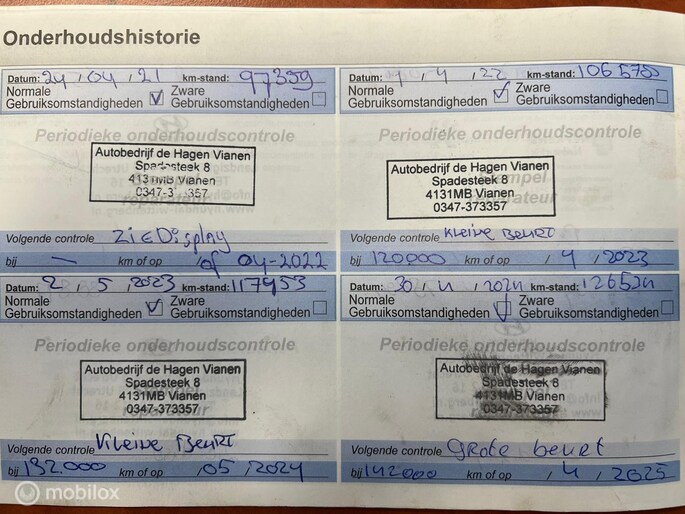 Onderhoudshistorie
Datum: 24 / 04 / 21 km-stand: 97359
Normale Gebruiksomstandigheden Zware Gebruiksomstandigheden
Periodieke onderhoudscontrole
Autobedrijf de Hagen Vianen
Spadesteek 8
4131MB Vianen
0347-373357
Volgende controle ZiE Display
bij — km of op of 04-2022
Datum: 1 / 4 / 22 km-stand:
Normale Gebruiksomstandigheden Zware Gebruiksomstandigheden
Periodieke onderhoudscontrole
Autobedrijf de Hagen Vianen
Spadesteek 8
4131MB Vianen
0347-373357
Volgende controle Kleine Beurt
bij 120000 km of op / 4 / 2023
Datum: 2 / 5 / 2023 km-stand: 117953
Normale Gebruiksomstandigheden Zware Gebruiksomstandigheden
Periodieke onderhoudscontrole
Autobedrijf de Hagen Vianen
Spadesteek 8
4131MB Vianen
0347-373357
Volgende controle Kleine Beurt
bij 132.000 km of op / 05 / 2024
Datum: 30 / 4 / 2024 km-stand: 126524
Normale Gebruiksomstandigheden Zware Gebruiksomstandigheden
Periodieke onderhoudscontrole
Autobedrijf de Hagen Vianen
Spadesteek 8
4131MB Vianen
0347-373357
Volgende controle Grote beurt
bij 142000 km of op / 4 / 2025
mobilox